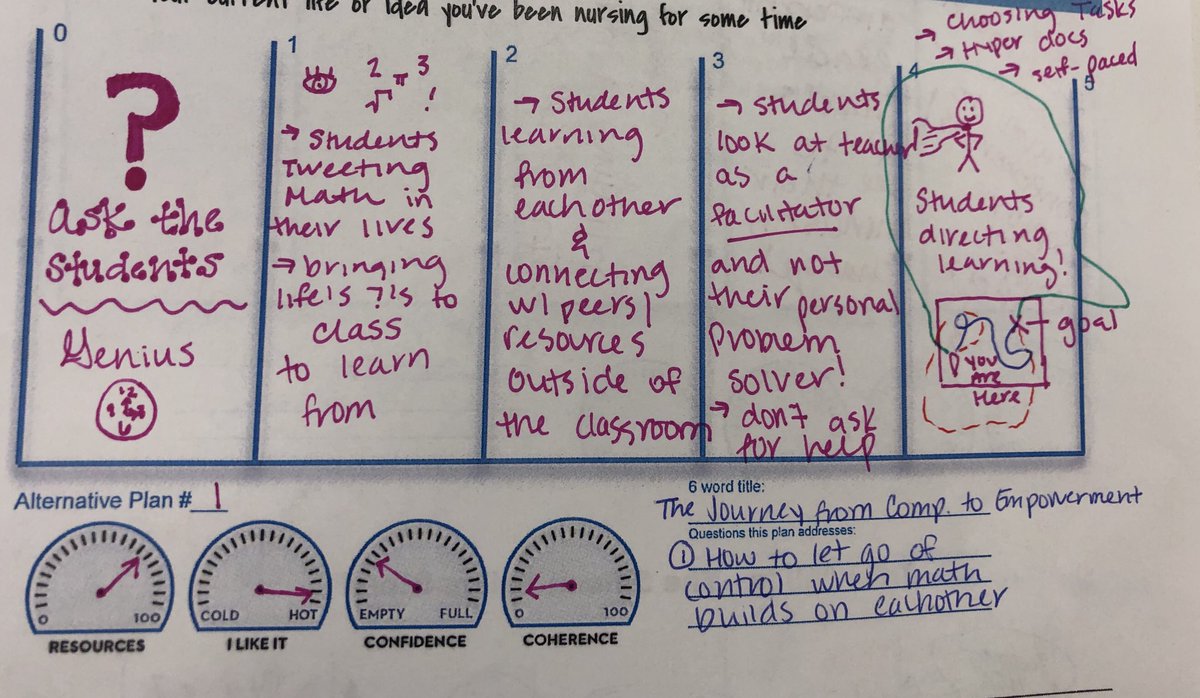 your current life or idea you've been nursing for some time
→ choosing Tasks
→ Hyper docs
→ self-paced
0
?
ask the
students
Genius
1
2 3
√ π !
→ Students
Tweeting
Math in
their lives
→ bringing
life's ?'s to
class
to learn
from
2
→ Students
learning
from
each other
&
connecting
w/ peers/
resources
outside of
the classroom
3
→ students
look at teacher
as a
facilitator
and not
their personal
problem
solver!
→ don't ask
for help
4
Students
directing
learning!
X → goal
you
are
Here
5
Alternative Plan # 1
0 100
RESOURCES
COLD HOT
I LIKE IT
EMPTY FULL
CONFIDENCE
0 100
COHERENCE
6 word title:
The Journey from Comp. to Empowerment
Questions this plan addresses:
① How to let go of
control when math
builds on eachother